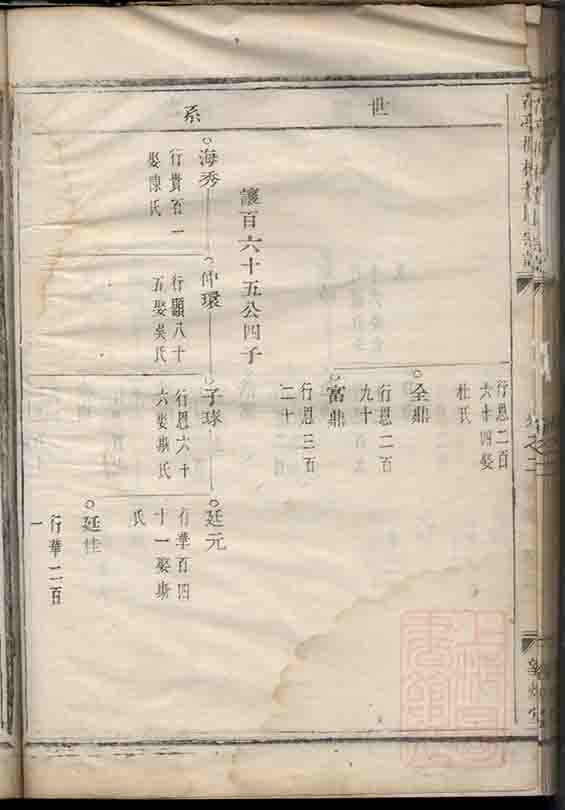 世系
行恩二百
六十四娶
杜氏
全鼎
行恩二百
九十
富鼎
行恩三百
二十
讓百六十五公四子
海秀
行貴百一
娶陳氏
仲環
行顯八十
五娶吳氏
子球
行恩六十
六娶斯氏
廷元
行華百四
十一娶斯
氏
廷桂
行華二百
一
上海圖
書館藏